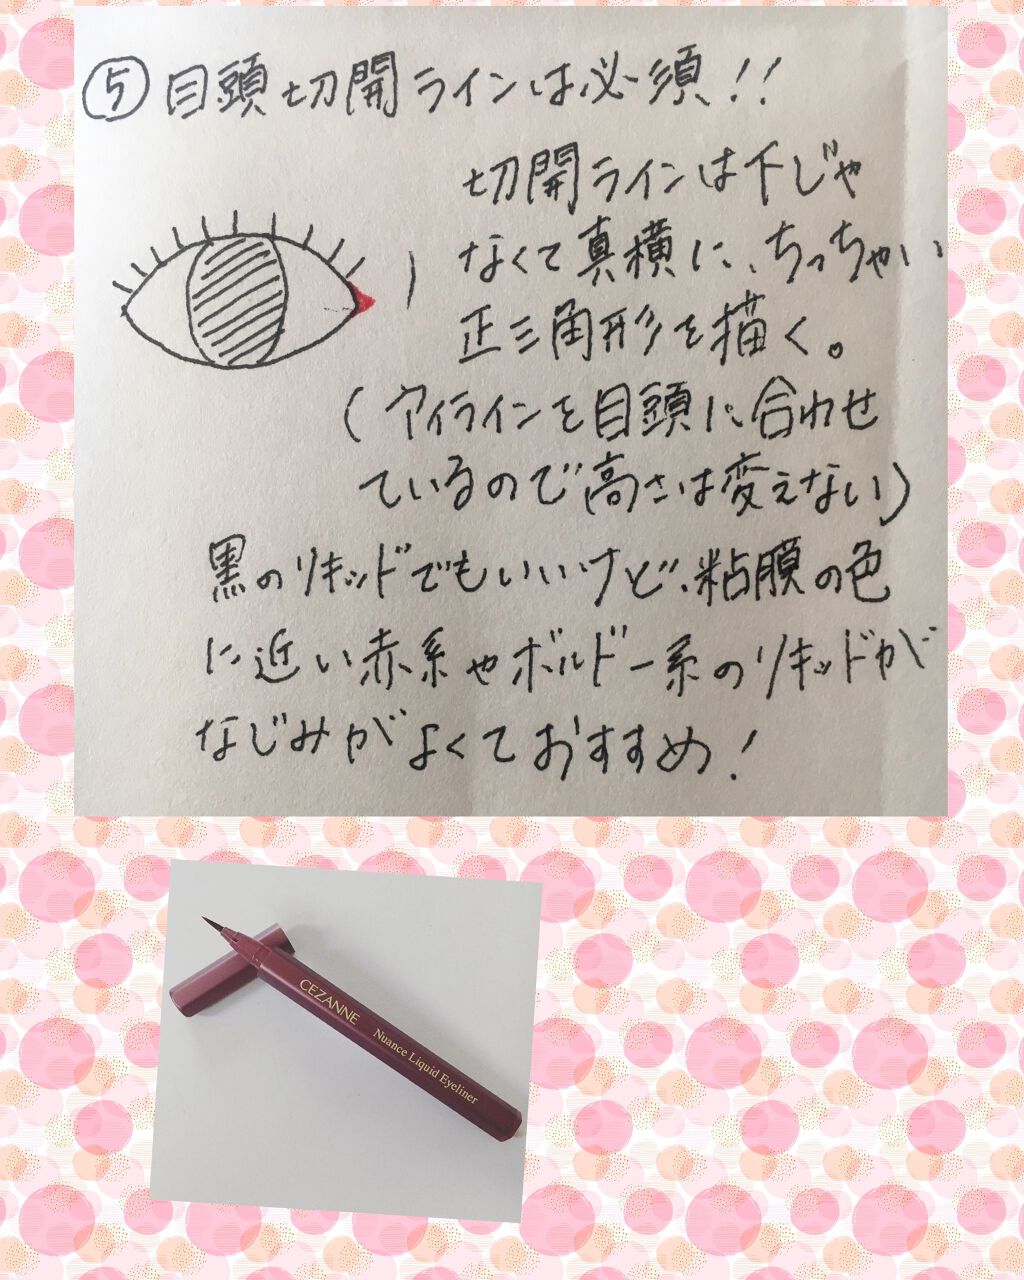 ⑤目頭切開ラインは必須!!
切開ラインは下じゃ
なくて真横に、ちっちゃい
正三角形を描く。
(アイラインを目頭に合わせ
ているので高さは変えない)
黒のリキッドでもいいけど、粘膜の色
に近い赤系やボルドー系のリキッドが
なじみがよくておすすめ!
CEZANNE Nuance Liquid Eyeliner